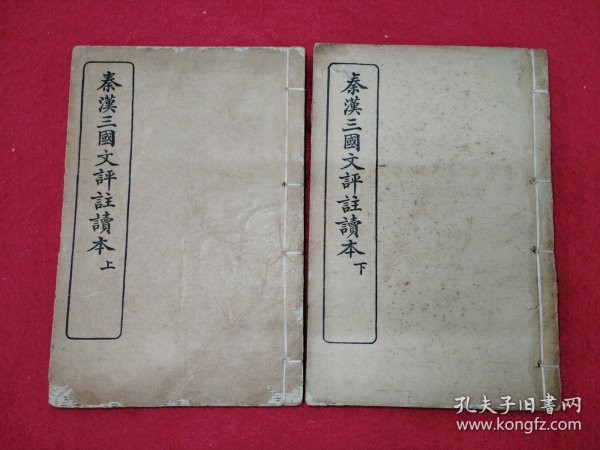 秦漢三國文評註讀本 上
秦漢三國文評註讀本 下
孔夫子旧書网
www.kongfz.com